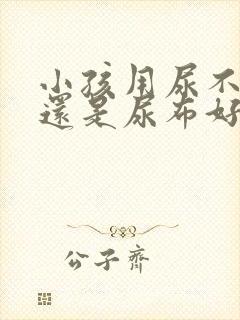 小孩用尿不
還是尿布好
公子齊